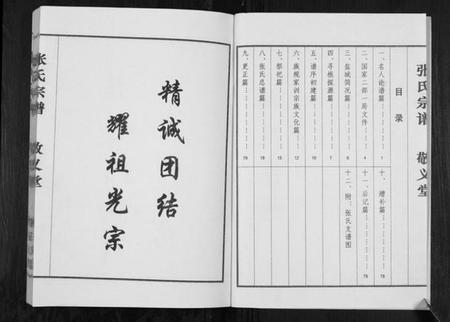 张氏宗谱 敬义堂
目录
一、名人论谱篇 1
二、国家二部一局文件 4
三、盐城简况篇 7
四、寻根探源篇
五、谱序初建篇
六、族规家训宗族文化篇 12
七、祭祀篇
八、张氏总谱篇 18
九、更正篇 76
十、增补篇 78
十一、后记篇 78
十二、附:张氏支谱图
精诚团结
耀祖光宗
张氏宗谱 敬义堂